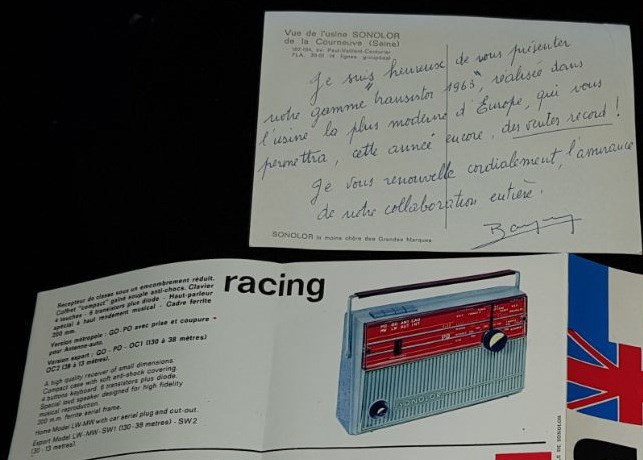 Vue de l'usine SONOLOR
de la Courneuve (Seine)
Je suis heureuse de vous présenter
notre gamme "transistor 1963", réalisée dans
l'usine la plus moderne d'Europe, qui vous
permettra, cette année encore, des ventes record !
Je vous renouvelle cordialement, l'assurance
de notre collaboration entière.
SONOLOR la moins chère des Grandes Marques
racing
Récepteur de classe sous un encombrement réduit.
Coffret "compact" gainé souple anti-chocs. Clavier
4 touches - 6 transistors plus diode - Haut-parleur
spécial à haut rendement musical - Cadre ferrite
200 mm.
Version métropole : GO-PO avec prise et coupure
pour Antenne-auto.
Version export : GO - PO - OC1 (130 à 38 mètres)
OC2 (39 à 13 mètres).
A high quality receiver of small dimensions.
Compact case with soft anti-shock covering.
4 buttons keyboard 6 transistors plus diode.
Special loud speaker designed for high fidelity
musical reproduction.
200 mm. ferrite aerial frame.
Home Model LW-MW with car aerial plug and cut-out.
Export Model LW-MW-SW1 (130-38 metres) - SW2
(30 - 13 metres).
SONOLOR